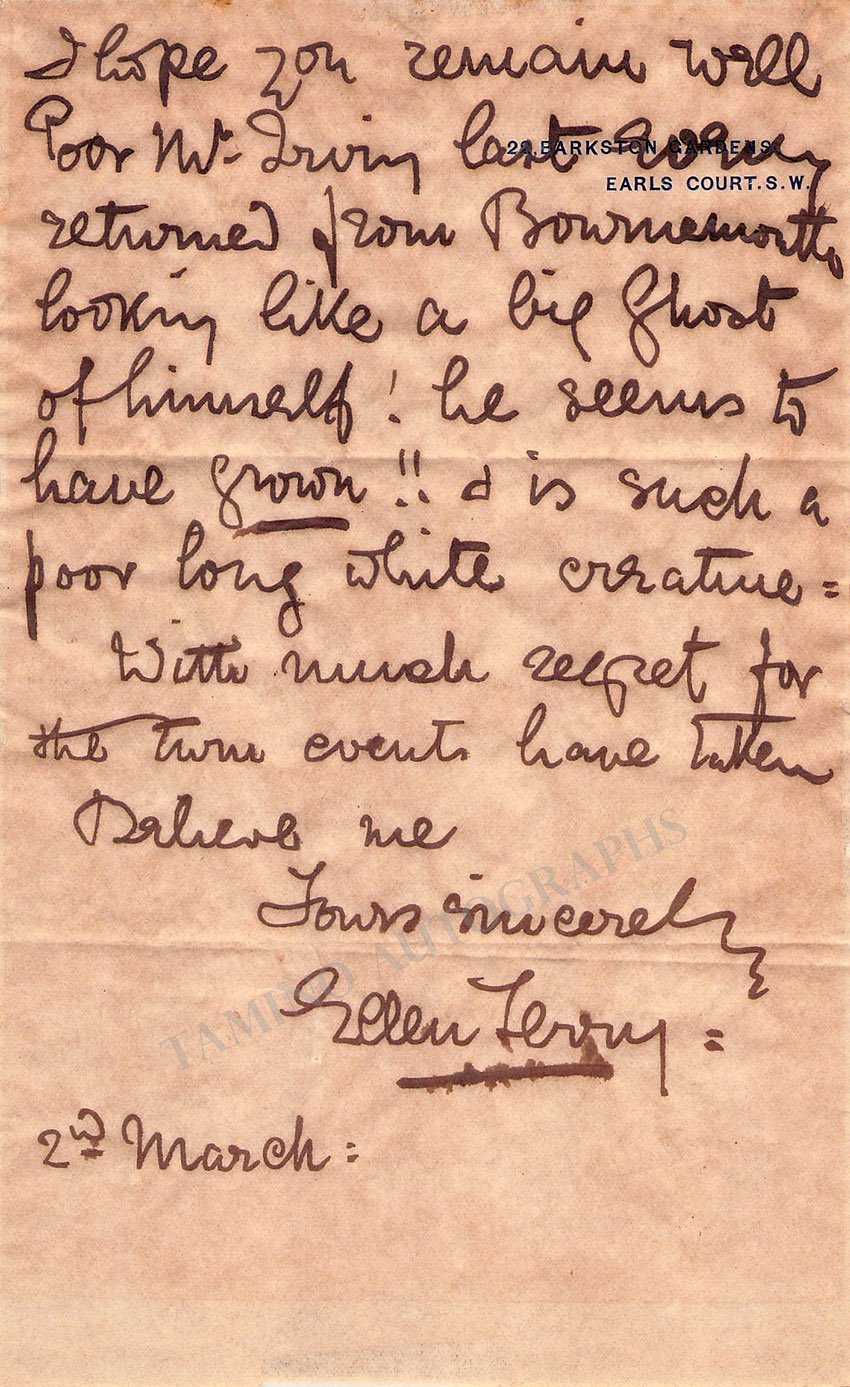 I hope you remain well
Poor Mr. Irving last evening
22, BARKSTON GARDENS,
EARLS COURT. S.W.
returned from Bournemouth
looking like a big Ghost
of himself! he seems to
have grown!! & is such a
poor long white creature=
With much regret for
the turn events have taken
Believe me
Yours sincerely
Ellen Terry=
2nd March:
TAMINO AUTOGRAPHS